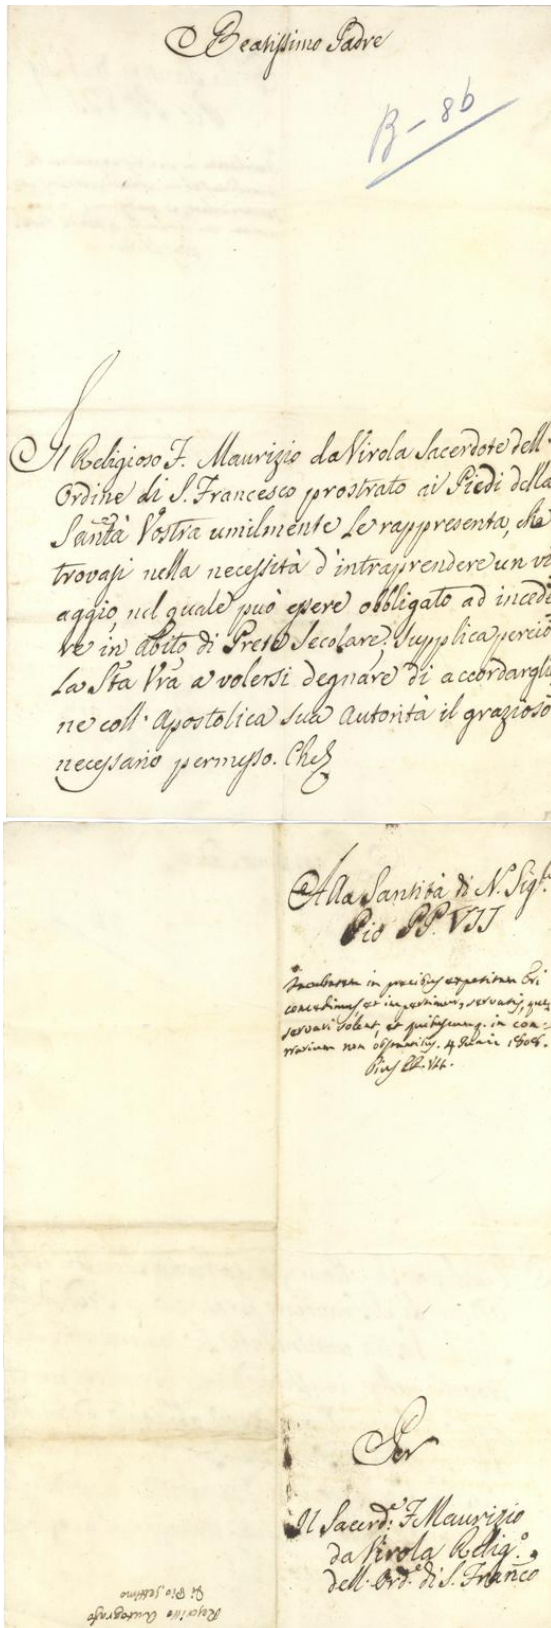 Beatissimo Padre
B-86
Il Religioso F. Maurizio da Virola Sacerdote dell'
Ordine di S. Francesco prostrato ai Piedi della
Santà Vostra umilmente Le rappresenta, che
trovasi nella necessità d'intraprendere un vi
aggio, nel quale può essere obbligato ad incede
re in abito di Prete Secolare. Supplica perciò
La Sta Vra a volersi degnare di accordargli
ne coll' Apostolica sua Autorità il grazioso
necessario permesso. Che
Alla Santità di N. Sigre
Pio PP. VII
in precibus expetitam
concedimus et impertimur, servatis, quae
servari solent, et quibuscunq. in con-
trarium non obstantibus. 4 Junii 1808.
Pius PP. VII.
Per
Il Sacerde: F. Maurizio
da Virola Religo.
dell. Orde. di S. Franco
Rescritto Autografo
di Pio settimo